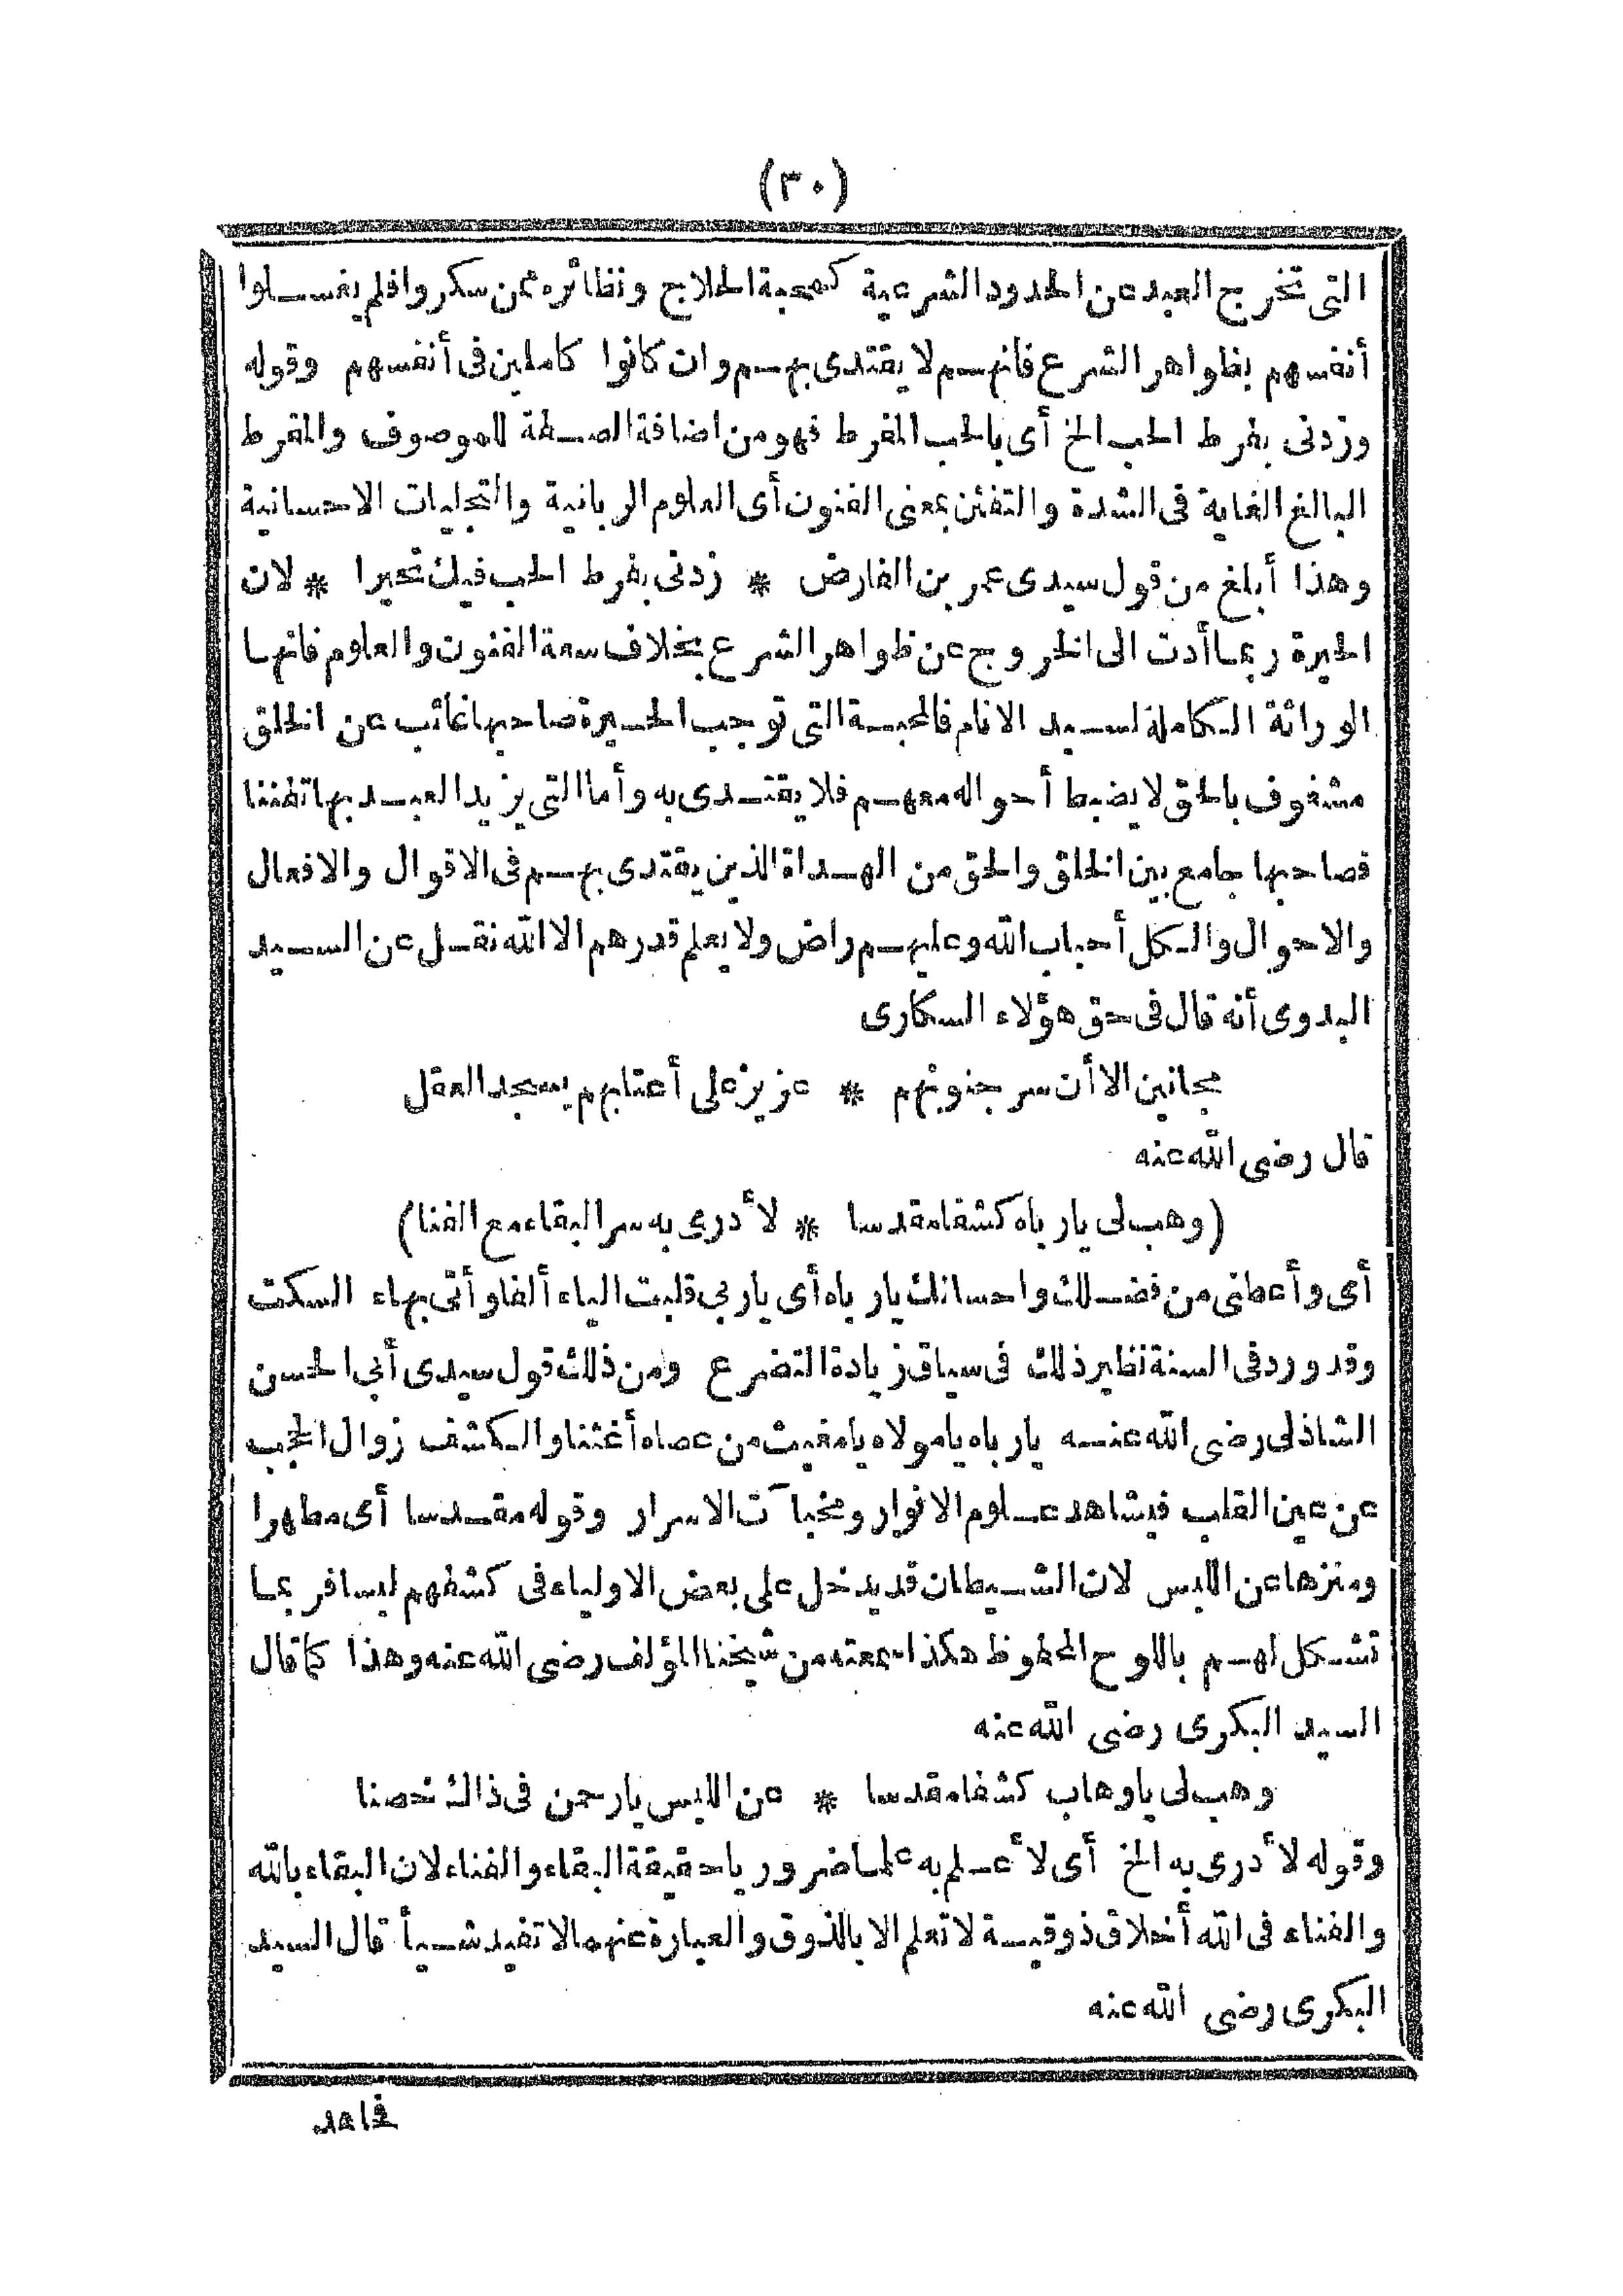 (٣٠)
التى تخرج العبد عن الحدود الشرعية كمحبة الحلاج ونظائره ممن سكروا فلم يغسلوا
أنفسهم بظواهر الشرع فانهم لا يقتدى بهم وان كانوا كاملين فى أنفسهم وقوله
وزدنى بفرط الحب الخ أى بالحب المفرط فهو من اضافة الصفة للموصوف والمفرط
البالغ الغاية فى الشدة والتفنن بمعنى الفنون أى العلوم الربانية والتجليات الاحسانية
وهذا أبلغ من قول سيدى عمر بن الفارض * زدنى بفرط الحب فيك تحيرا * لان
الحيرة ربما أدت الى الخروج عن ظواهر الشرع بخلاف سعة الفنون والعلوم فانها
الوراثة الكاملة لسيد الانام فالمحبة التى توجب الحيرة صاحبها غائب عن الخلق
مشغوف بالحق لا يضبط أحواله معهم فلا يقتدى به وأما التى يزيد العبد بها تفننا
فصاحبها جامع بين الخلق والحق من الهداة الذين يقتدى بهم فى الاقوال والافعال
والاحوال والكل أحباب الله وعليهم راض ولا يعلم قدرهم الا الله نقل عن السيد
البدوى أنه قال فى حق هؤلاء السكارى
مجانين الا أن سر جنونهم * عزيز على أعتابهم يسجد العقل
قال رضى الله عنه
(وهب لى يا رباه كشفا مقدسا * لأدرى به سر البقاء مع الفنا)
أى وأعطنى من فضلك واحسانك يا رباه أى يا ربى قلبت الياء ألفا وأتى بهاء السكت
وقد ورد فى السنة نظير ذلك فى سياق زيادة التضرع ومن ذلك قول سيدى أبى الحسن
الشاذلى رضى الله عنه يا رباه يا مولاه يا مغيث من عصاه أغثنا والكشف زوال الحجب
عن عين القلب فيشاهد علوم الانوار ومخبآت الاسرار وقوله مقدسا أى مطهرا
ومنزها عن اللبس لان الشيطان قد يدخل على بعض الاولياء فى كشفهم ليسافر بما
تشكل لهم باللوح المحفوظ هكذا سمعته من شيخنا المؤلف رضى الله عنه وهذا كما قال
السيد البكرى رضى الله عنه
وهب لى يا وهاب كشفا مقدسا * عن اللبس يا رحمن فى ذاك نحصنا
وقوله لأدرى به الخ أى لأعلم به علما ضروريا حقيقة البقاء والفناء لان البقاء بالله
والفناء فى الله أخلاق ذوقية لا تعلم الا بالذوق والعبارة عنهما لا تفيد شيأ قال السيد
البكرى رضى الله عنه